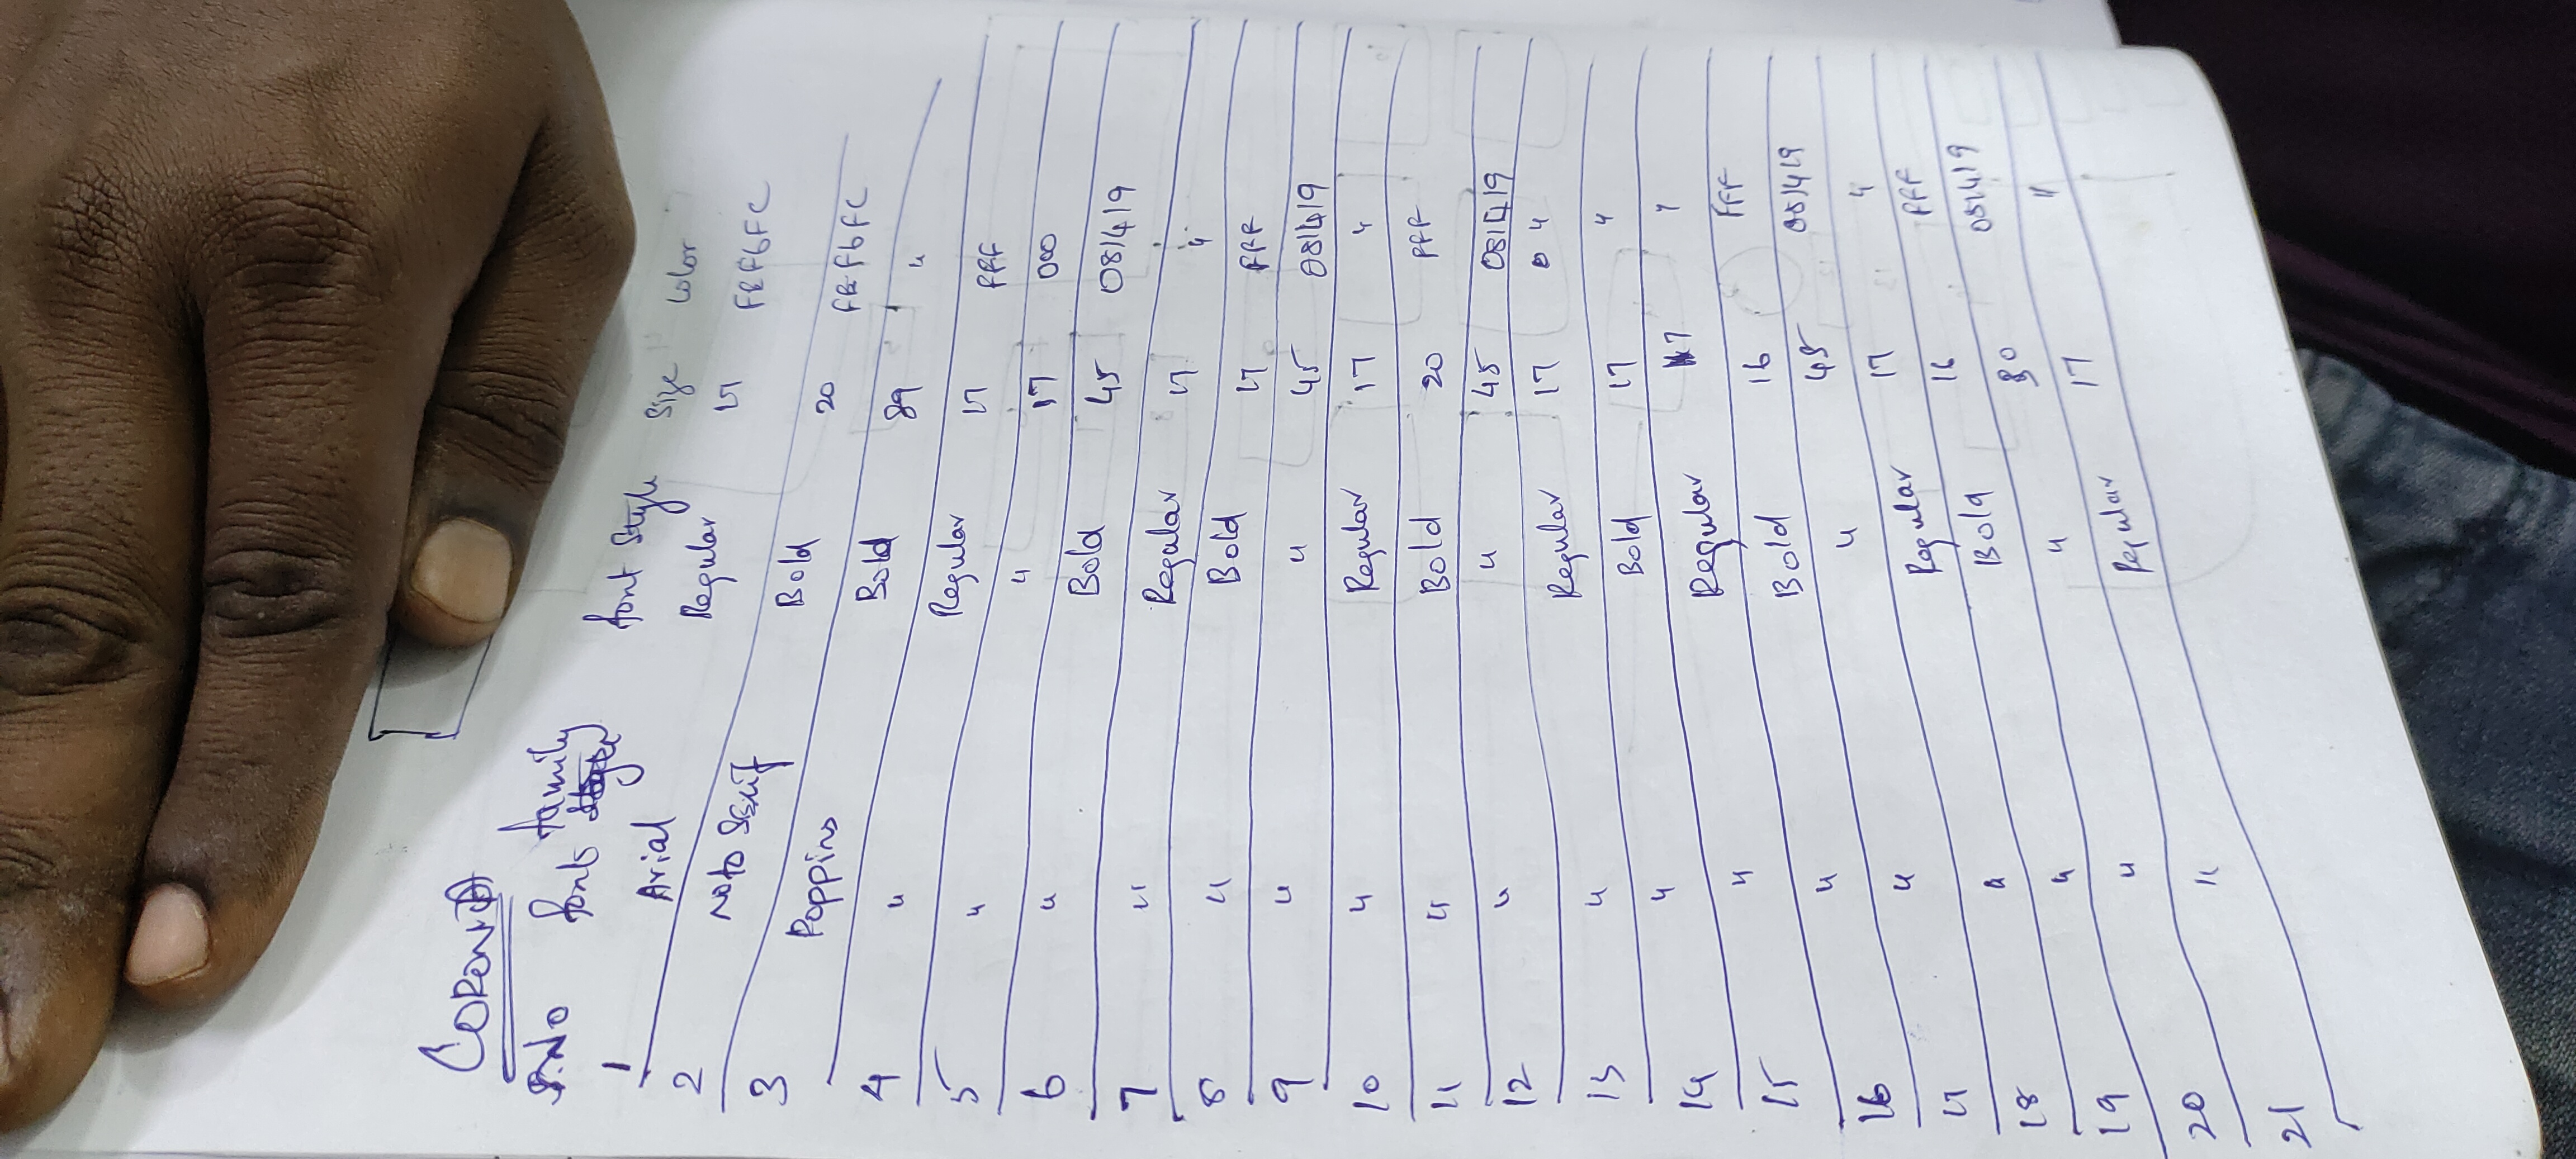 CORONA
S.No font family font Style Size Color
1 Arial Regular 17
2 Noto Serif Bold 20
3 Poppins Bold 89 "
4 " Regular 17 FFF
5 " " 17 000
6 " Bold 45 081419
7 " Regular 17 "
8 " Bold 17 FFF
9 " " 45 081419
10 " Regular 17 "
11 " Bold 20 FFF
12 " " 45 081419
13 " Regular 17 "
14 " Bold 17 "
15 " Regular 17 "
16 " Bold 16 FFF
17 " " 45 081419
18 " Regular 17 "
19 " Bold 16 FFF
20 " " 081419
21 " Regular 17 "